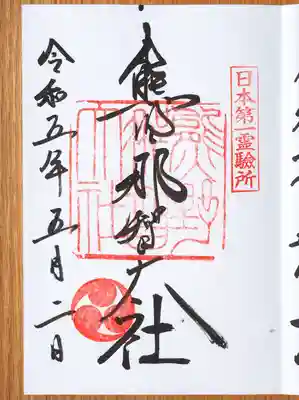 日本第一霊驗所
熊野那智大社
令和五年五月二日